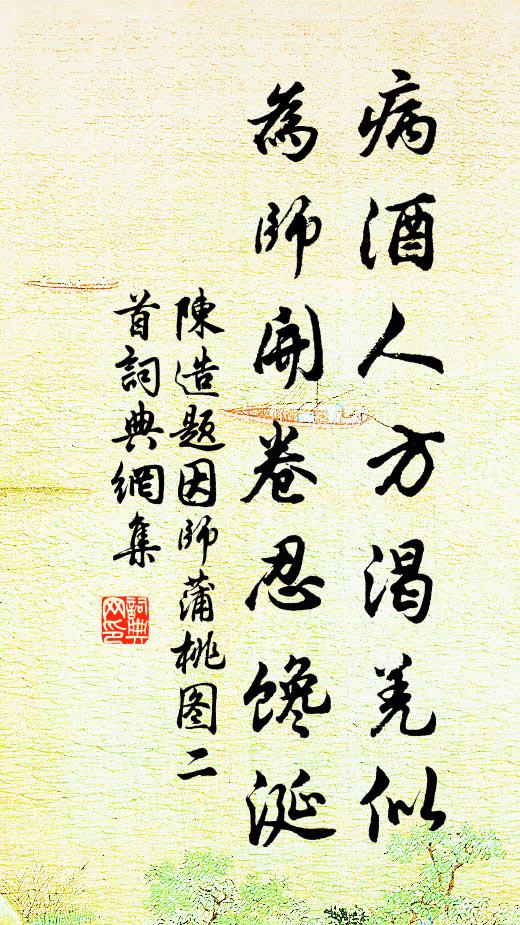 病酒人方渴羌似
為師開卷忍馋涎
陳造題因師蒲桃图二
首詞典網集
詞典
网印